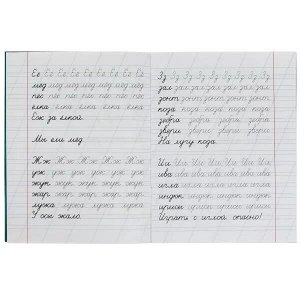 Ее Ее Ее Ее Ее Ее Ее Ее
мёд мёд мёд мёд мёд мёд
пёс пёс пёс пёс пёс пёс
ёлка ёлка ёлка ёлка ёлка
Ёж за ёлкой.
Мы ели мёд.
Жж Жж Жж Жж Жж Жж
уж уж уж уж уж уж
жук жук жук жук жук
жар жар жар жар жар
лужа лужа лужа лужа
У осы жало.
Зз Зз Зз Зз Зз Зз Зз Зз Зз
зал зал зал зал зал зал
зонт зонт зонт зонт зонт
коза коза коза коза коза
зебра зебра зебра зебра
звери звери звери звери
На лугу коза.
Ии Ии Ии Ии Ии Ии Ии Ии
ива ива ива ива ива ива
игла игла игла игла игла
индюк индюк индюк индюк
ирисы ирисы ирисы ирисы
Играть с иглой опасно!